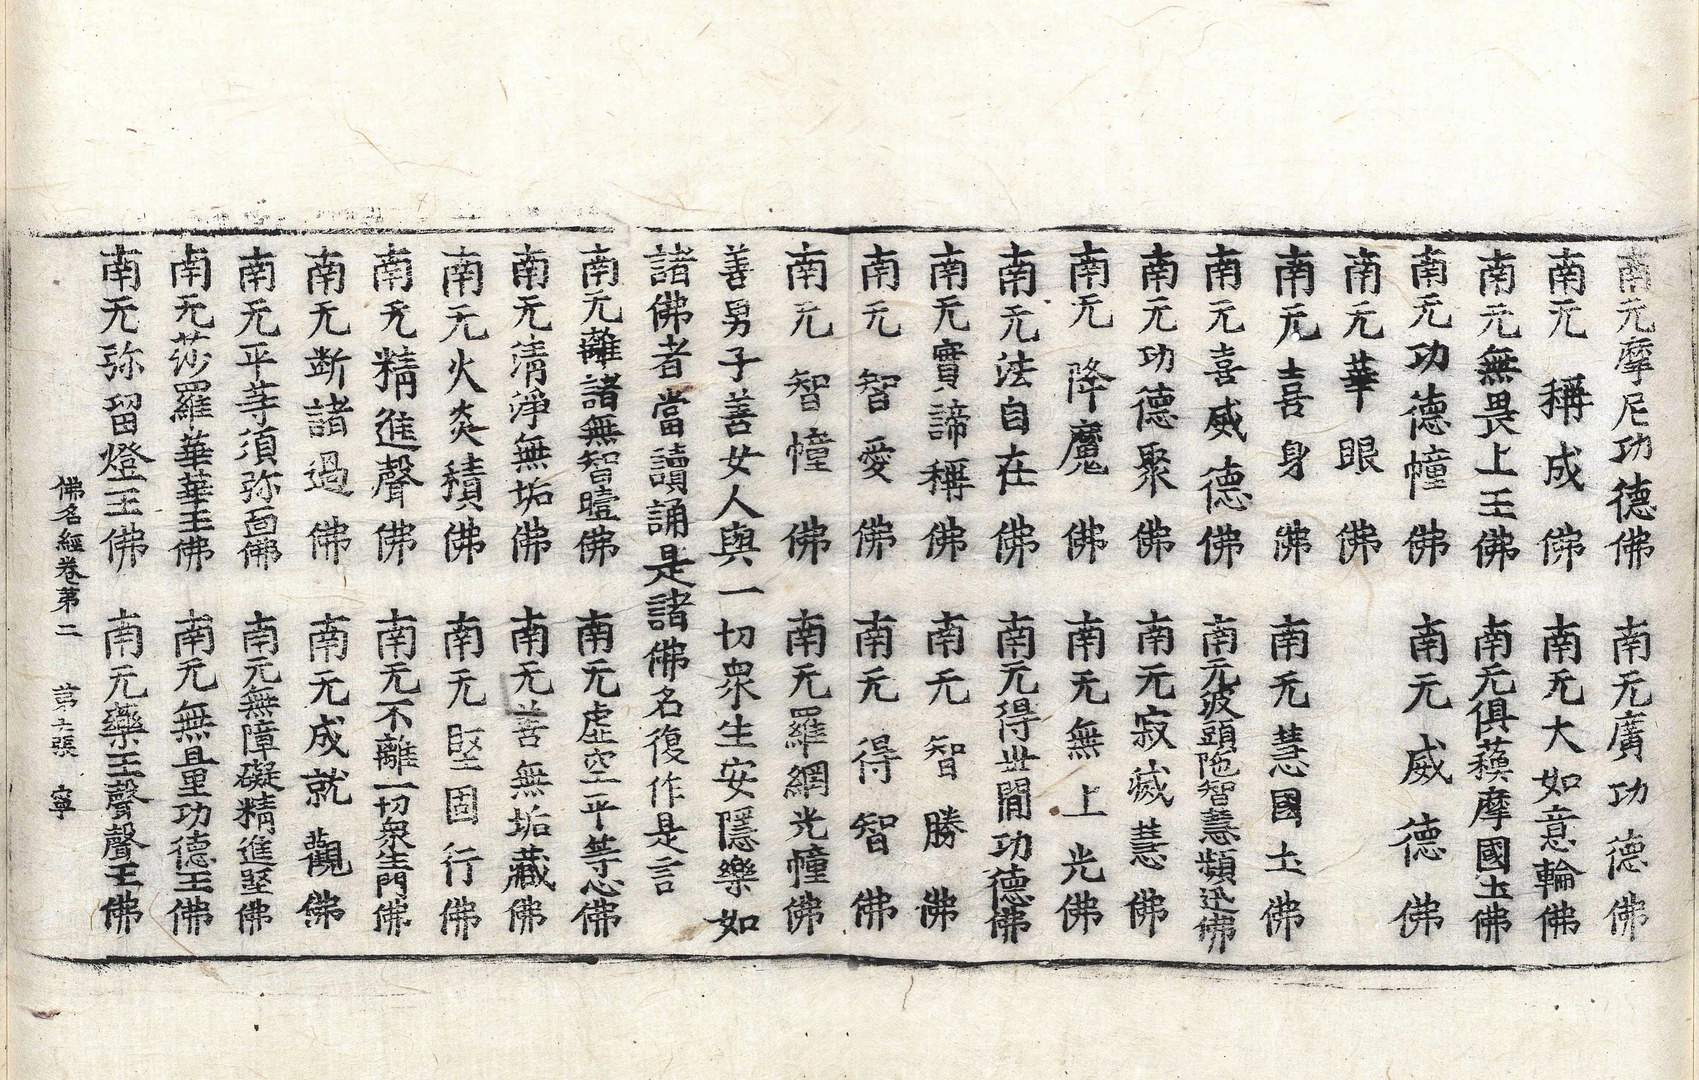 南无摩尼功德佛　南无廣功德佛
南无稱成佛　南无大如意輪佛
南无無畏上王佛　南无俱蘓摩國土佛
南无功德幢佛　南无威德佛
南无華眼佛
南无喜身佛　南无慧國土佛
南无喜威德佛　南无波頭陁智慧頻迅佛
南无功德聚佛　南无寂滅慧佛
南无降魔佛　南无無上光佛
南无法自在佛　南无得世間功德佛
南无實諦稱佛　南无智勝佛
南无智愛佛　南无得智佛
南无智幢佛　南无羅網光幢佛
善男子善女人與一切衆生安隱樂如
諸佛者當讀誦是諸佛名復作是言
南无離諸無智曀佛　南无虛空平等心佛
南无清淨無垢佛　南无善無垢藏佛
南无火炎積佛　南无堅固行佛
南无精進聲佛　南无不離一切衆生門佛
南无断諸過佛　南无成就觀佛
南无平等須弥面佛　南无無障礙精進堅佛
南无莎羅華華王佛　南无無量功德王佛
南无弥留燈王佛　南无藥王聲聲王佛
佛名經卷第二　第張　寧